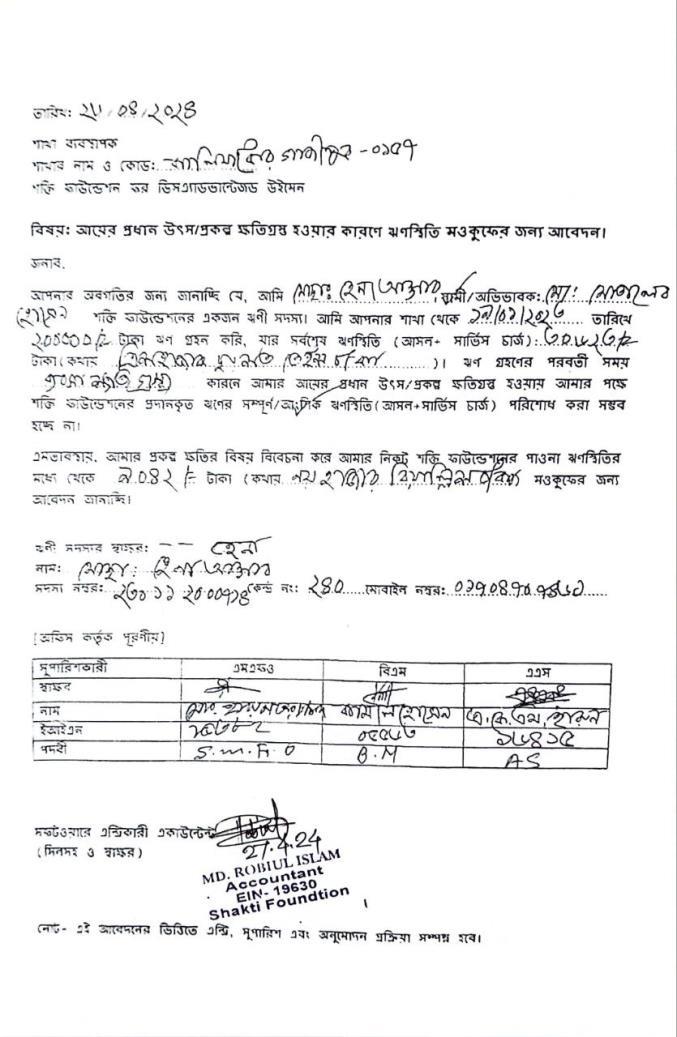 তারিখ: ২৮/০৪/২০২৪
শাখা ব্যবস্থাপক
শাখার নাম ও কোড: কালিয়াকৈর গাজীপুর - ০১৫৭
শক্তি ফাউন্ডেশন ফর ডিসএ্যাডভান্টেজড উইমেন
বিষয়: আয়ের প্রধান উৎস/প্রকল্প ক্ষতিগ্রস্ত হওয়ার কারণে ঋণস্থিতি মওকুফের জন্য আবেদন।
জনাব,
আপনার অবগতির জন্য জানাচ্ছি যে, আমি মোছাঃ হেনা আক্তার, স্বামী/অভিভাবক: মোঃ
হোসেন শক্তি ফাউন্ডেশনের একজন ঋণী সদস্য। আমি আপনার শাখা থেকে তারিখে
টাকা ঋণ গ্রহন করি, যার সর্বশেষ ঋণস্থিতি (আসল+ সার্ভিস চার্জ)
টাকা (কথায় )। ঋণ গ্রহণের পরবর্তী সময়
কারনে আমার আয়ের প্রধান উৎস/প্রকল্প ক্ষতিগ্রস্ত হওয়ায় আমার পক্ষে
শক্তি ফাউন্ডেশনের প্রদানকৃত ঋণের সম্পূর্ণ/আংশিক ঋণস্থিতি (আসল+সার্ভিস চার্জ) পরিশোধ করা সম্ভব
হচ্ছে না।
এমতাবস্থায়, আমার প্রকল্প ক্ষতির বিষয় বিবেচনা করে আমার নিকট শক্তি ফাউন্ডেশনের পাওনা ঋণস্থিতির
মধ্যে থেকে ৯০৪২/= টাকা (কথায় নয় হাজার বিয়াল্লিশ টাকা) মওকুফের জন্য
আবেদন জানাচ্ছি।
ঋণী সদস্যার স্বাক্ষর: হেনা
নাম: মোছাঃ হেনা আক্তার
সদস্য নম্বর: কেন্দ্র নং: ২৪০ মোবাইল নম্বর:
[অফিস কর্তৃক পূরণীয়]
সুপারিশকারী এমএফও বিএম এএস
স্বাক্ষর
নাম কামাল হোসেন এ.কে.এম.
ইআইএন
পদবী S.M.F.O B.M AS
সফটওয়্যারে এন্ট্রিকারী একাউন্টেন্ট
(সিলসহ ও স্বাক্ষর)
27.4.24
MD. ROBIUL ISLAM
Accountant
EIN- 19630
Shakti Foundtion
নোট- এই আবেদনের ভিত্তিতে এন্ট্রি, সুপারিশ এবং অনুমোদন প্রক্রিয়া সম্পন্ন হবে।